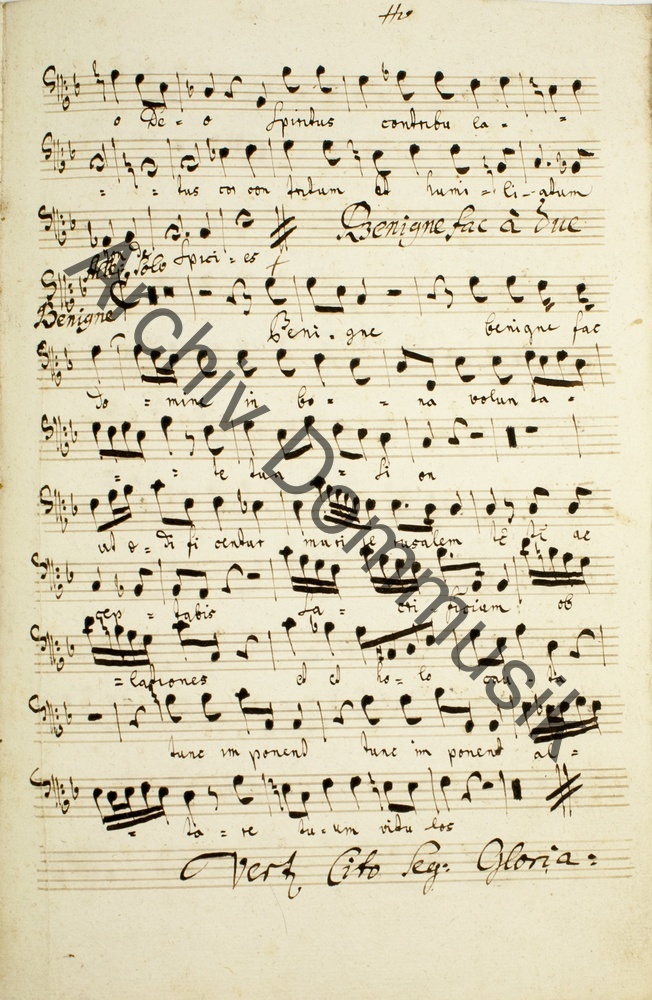 o De = o Spiritus contribu la = =
= = tus cor con tritum et humi = li = atum
Benigne fac à due
non de Spici = es
Solo
Benigne
Beni = gne benigne fac
Do = mine in bo = = na volun ta =
= = te tua = Si on
ut e = di fi centur muri Je rusalem tc̃ tc̃ ac
cep = tabis sa = cri ficium ob
= lationes et et ho = lo cau = ta
tunc im ponent tunc im ponent al =
= ta = re tu = um vitu los
Vert Cito Seg: Gloria =
Archiv Dommusik